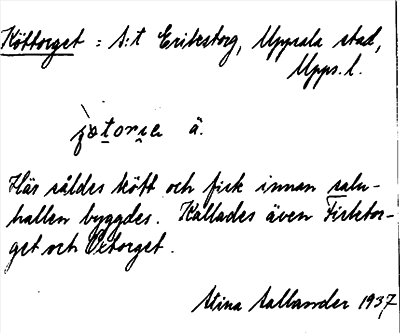 Köttorget : S:t Erikstorg, Uppsala stad,
Upps. l.
ä.
Här såldes kött och fisk innan salu-
hallen byggdes. Kallades även Fisktor-
get och Oxtorget.
Stina Sallander 1937